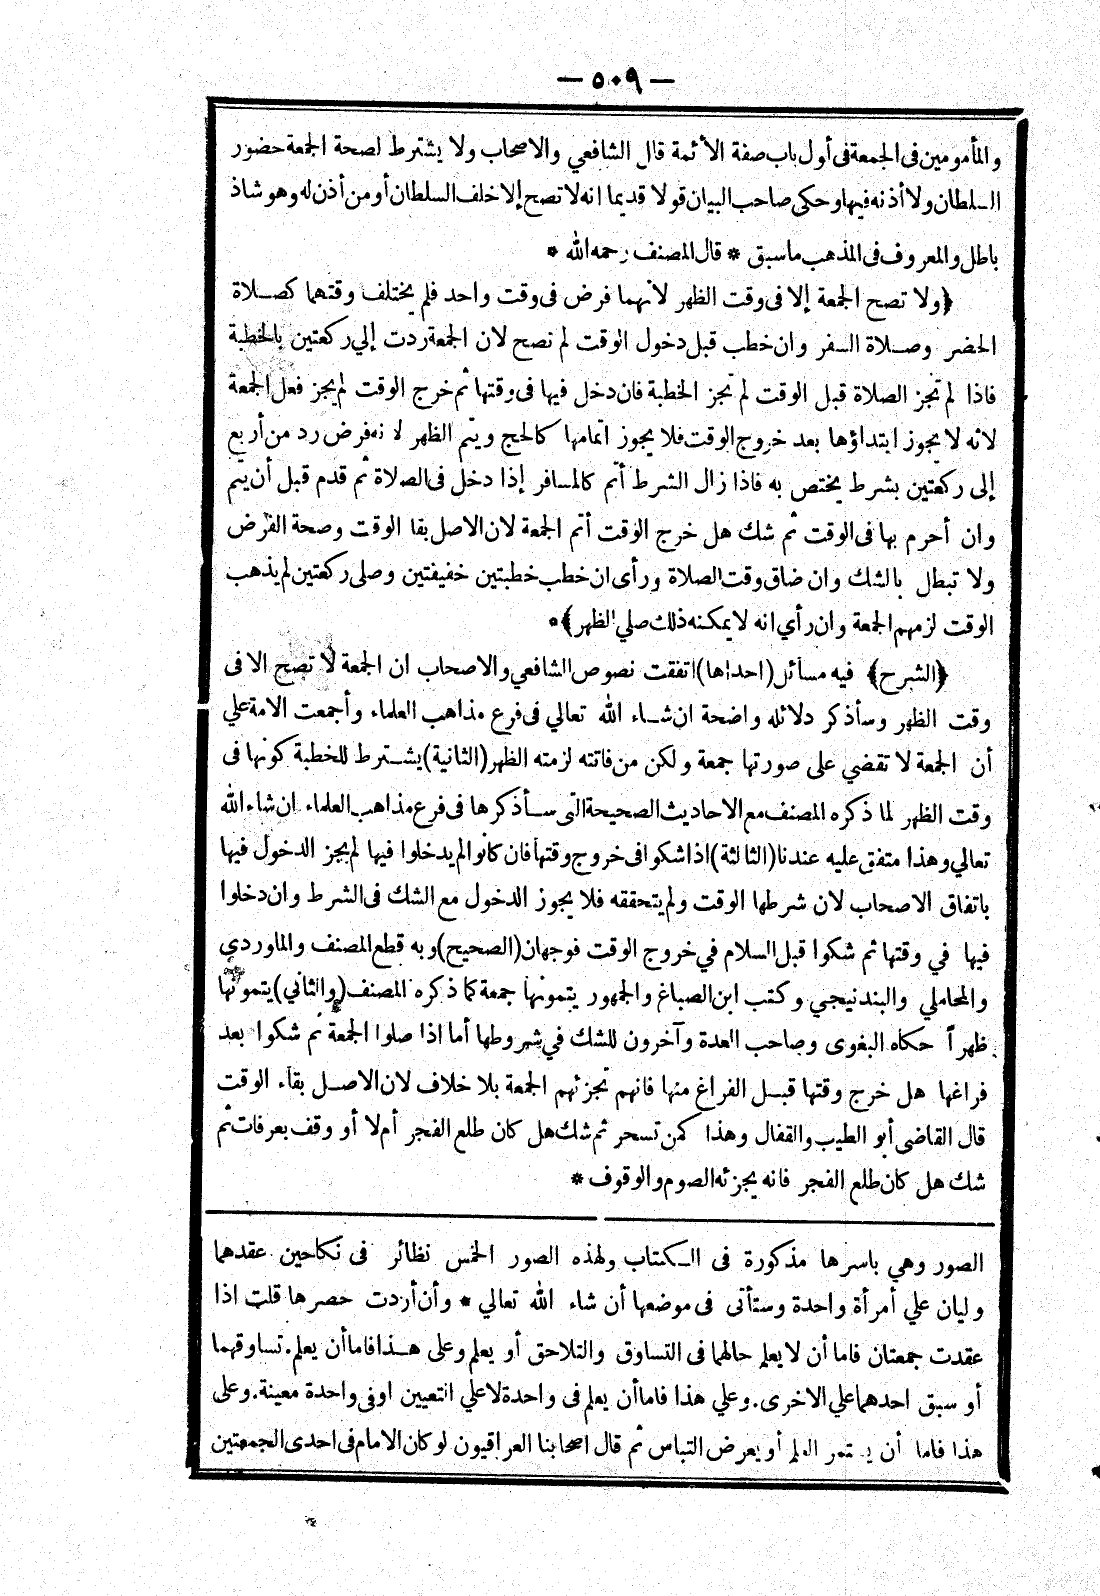 — ٥٠٩ —
والمأمومين فى الجمعة فى أول باب صفة الأئمة قال الشافعي والاصحاب ولا يشترط لصحة الجمعة حضور
السلطان ولا أذنه فيها وحكى صاحب البيان قولا قديما انه لا تصح إلا خلف السلطان أو من أذن له وهو شاذ
باطل والمعروف فى المذهب ما سبق * قال المصنف رحمه الله *
﴿ولا تصح الجمعة إلا فى وقت الظهر لأنهما فرض فى وقت واحد فلم يختلف وقتهما كصلاة
الحضر وصلاة السفر وان خطب قبل دخول الوقت لم تصح لان الجمعة ردت إلي ركعتين بالخطبة
فاذا لم تجز الصلاة قبل الوقت لم تجز الخطبة فان دخل فيها فى وقتها ثم خرج الوقت لم يجز فعل الجمعة
لانه لا يجوز ابتداؤها بعد خروج الوقت فلا يجوز اتمامها كالحج ويتم الظهر لانه فرض رد من أربع
إلى ركعتين بشرط يختص به فاذا زال الشرط أتم كالمسافر إذا دخل فى الصلاة ثم قدم قبل أن يتم
وان أحرم بها فى الوقت ثم شك هل خرج الوقت أتم الجمعة لان الاصل بقا الوقت وصحة الفرض
ولا تبطل بالشك وان ضاق وقت الصلاة ورأى ان خطب خطبتين خفيفتين وصلى ركعتين لم يذهب
الوقت لزمهم الجمعة وان رأي انه لا يمكنه ذلك صلي الظهر﴾*
﴿الشرح﴾ فيه مسائل (احداها) اتفقت نصوص الشافعي والاصحاب ان الجمعة لا تصح الا فى
وقت الظهر وسأذكر دلائله واضحة ان شاء الله تعالي فى فرع مذاهب العلماء وأجمعت الامة علي
أن الجمعة لا تقضي على صورتها جمعة ولكن من فاتته لزمته الظهر (الثانية) يشترط للخطبة كونها فى
وقت الظهر لما ذكره المصنف مع الاحاديث الصحيحة التى سأذكرها فى فرع مذاهب العلماء ان شاء الله
تعالي وهذا متفق عليه عندنا (الثالثة) اذا شكوا فى خروج وقتها فان كانوا لم يدخلوا فيها لم يجز الدخول فيها
باتفاق الاصحاب لان شرطها الوقت ولم يتحققه فلا يجوز الدخول مع الشك فى الشرط وان دخلوا
فيها في وقتها ثم شكوا قبل السلام في خروج الوقت فوجهان (الصحيح) وبه قطع المصنف والماوردي
والمحاملي والبندنيجي وكتب ابن الصباغ والجمهور يتمونها جمعة كما ذكره المصنف (والثاني) يتمونها
ظهراً حكاه البغوى وصاحب العدة وآخرون للشك في شروطها أما اذا صلوا الجمعة ثم شكوا بعد
فراغها هل خرج وقتها قبل الفراغ منها فانهم تجزئهم الجمعة بلا خلاف لان الاصل بقاء الوقت
قال القاضى أبو الطيب والقفال وهذا كمن تسحر ثم شك هل كان طلع الفجر أم لا أو وقف بعرفات ثم
شك هل كان طلع الفجر فانه يجزئه الصوم والوقوف *
الصور وهي باسرها مذكورة فى الكتاب ولهذه الصور الخمس نظائر فى نكاحين عقدهما
وليان علي أمرأة واحدة وستأتى فى موضعها أن شاء الله تعالي * وأن أردت حصرها قلت اذا
عقدت جمعتان فاما أن لا يعلم حالهما فى التساوق والتلاحق أو يعلم وعلى هذا فاما أن يعلم. تساوقهما
أو سبق احدهما علي الاخرى. وعلي هذا فاما أن يعلم فى واحدة لا علي التعيين اوفى واحدة معينة. وعلى
هذا فاما أن يستمر العلم أو يعرض التباس ثم قال اصحابنا العراقيون لو كان الامام فى احدى الجمعتين